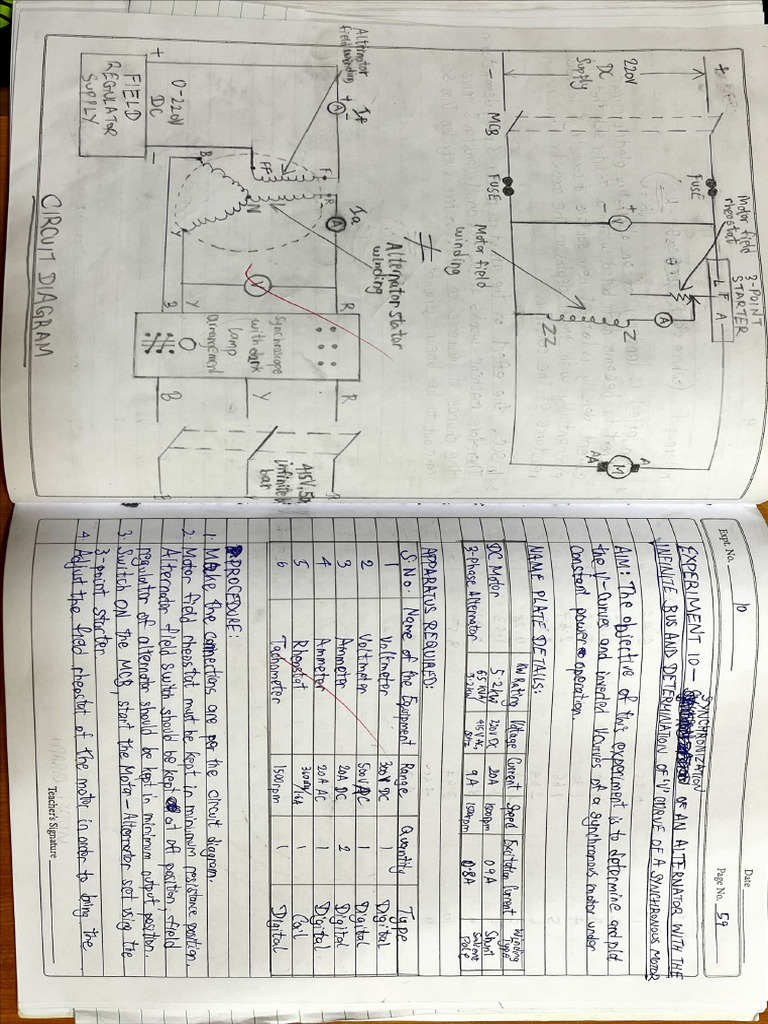 Expt. No. 10
Date
Page No. 59
SYNCHRONIZATION
EXPERIMENT 10 - OF AN ALTERNATOR WITH THE
INFINITE BUS AND DETERMINATION OF 'V' CURVE OF A SYNCHRONOUS MOTOR
AIM: The objective of this experiment is to determine and plot
the V-Curves and inverted V curves of a synchronous motor under
constant power operation.
NAME PLATE DETAILS:
KW Rating Voltage Current Speed Excitation Current Winding Type
DC Motor 5.2 kW 220V DC 20A 1500rpm 0.9A Shunt
3-Phase Alternator 415V AC, 50Hz 9A 1500rpm 0.8A Salient Pole
APPARATUS REQUIRED:
S.No. Name of the Equipment Range Quantity Type
1 Voltmeter 300V DC 1 Digital
2 Voltmeter 500V 1 Digital
3 Ammeter 20A DC 2 Digital
4 Ammeter 20A AC 1 Digital
5 Rheostat 1 Coil
6 Tachometer 1500rpm 1 Digital
PROCEDURE:
1. Make the connections are per the circuit diagram.
2. Motor field rheostat must be kept in minimum resistance position.
Alternator field switch should be kept at off position, field
regulator of alternator should be kept in minimum output position.
3. Switch ON the MCB, start the Motor-Alternator set using the
3-point starter.
4 Adjust the field rheostat of the motor in order to bring the
Teacher's Signature
+
220V
DC
Supply
-
MCB
FUSE
FUSE
Motor field
rheostat
3-POINT
STARTER
L F A
+
V
-
A
Motor field
winding
Z
ZZ
A
M
AA
Alternator
field winding
+
A
-
If
Ia
A
+
0-220V
DC
-
FIELD
REGULATOR
SUPPLY
F
FF
R
N
B
Y
Alternator stator
winding
V
R
Y
B
Synchroscope
with dark
lamp
arrangement
R
Y
B
415V, 50
infinite
bar
CIRCUIT DIAGRAM